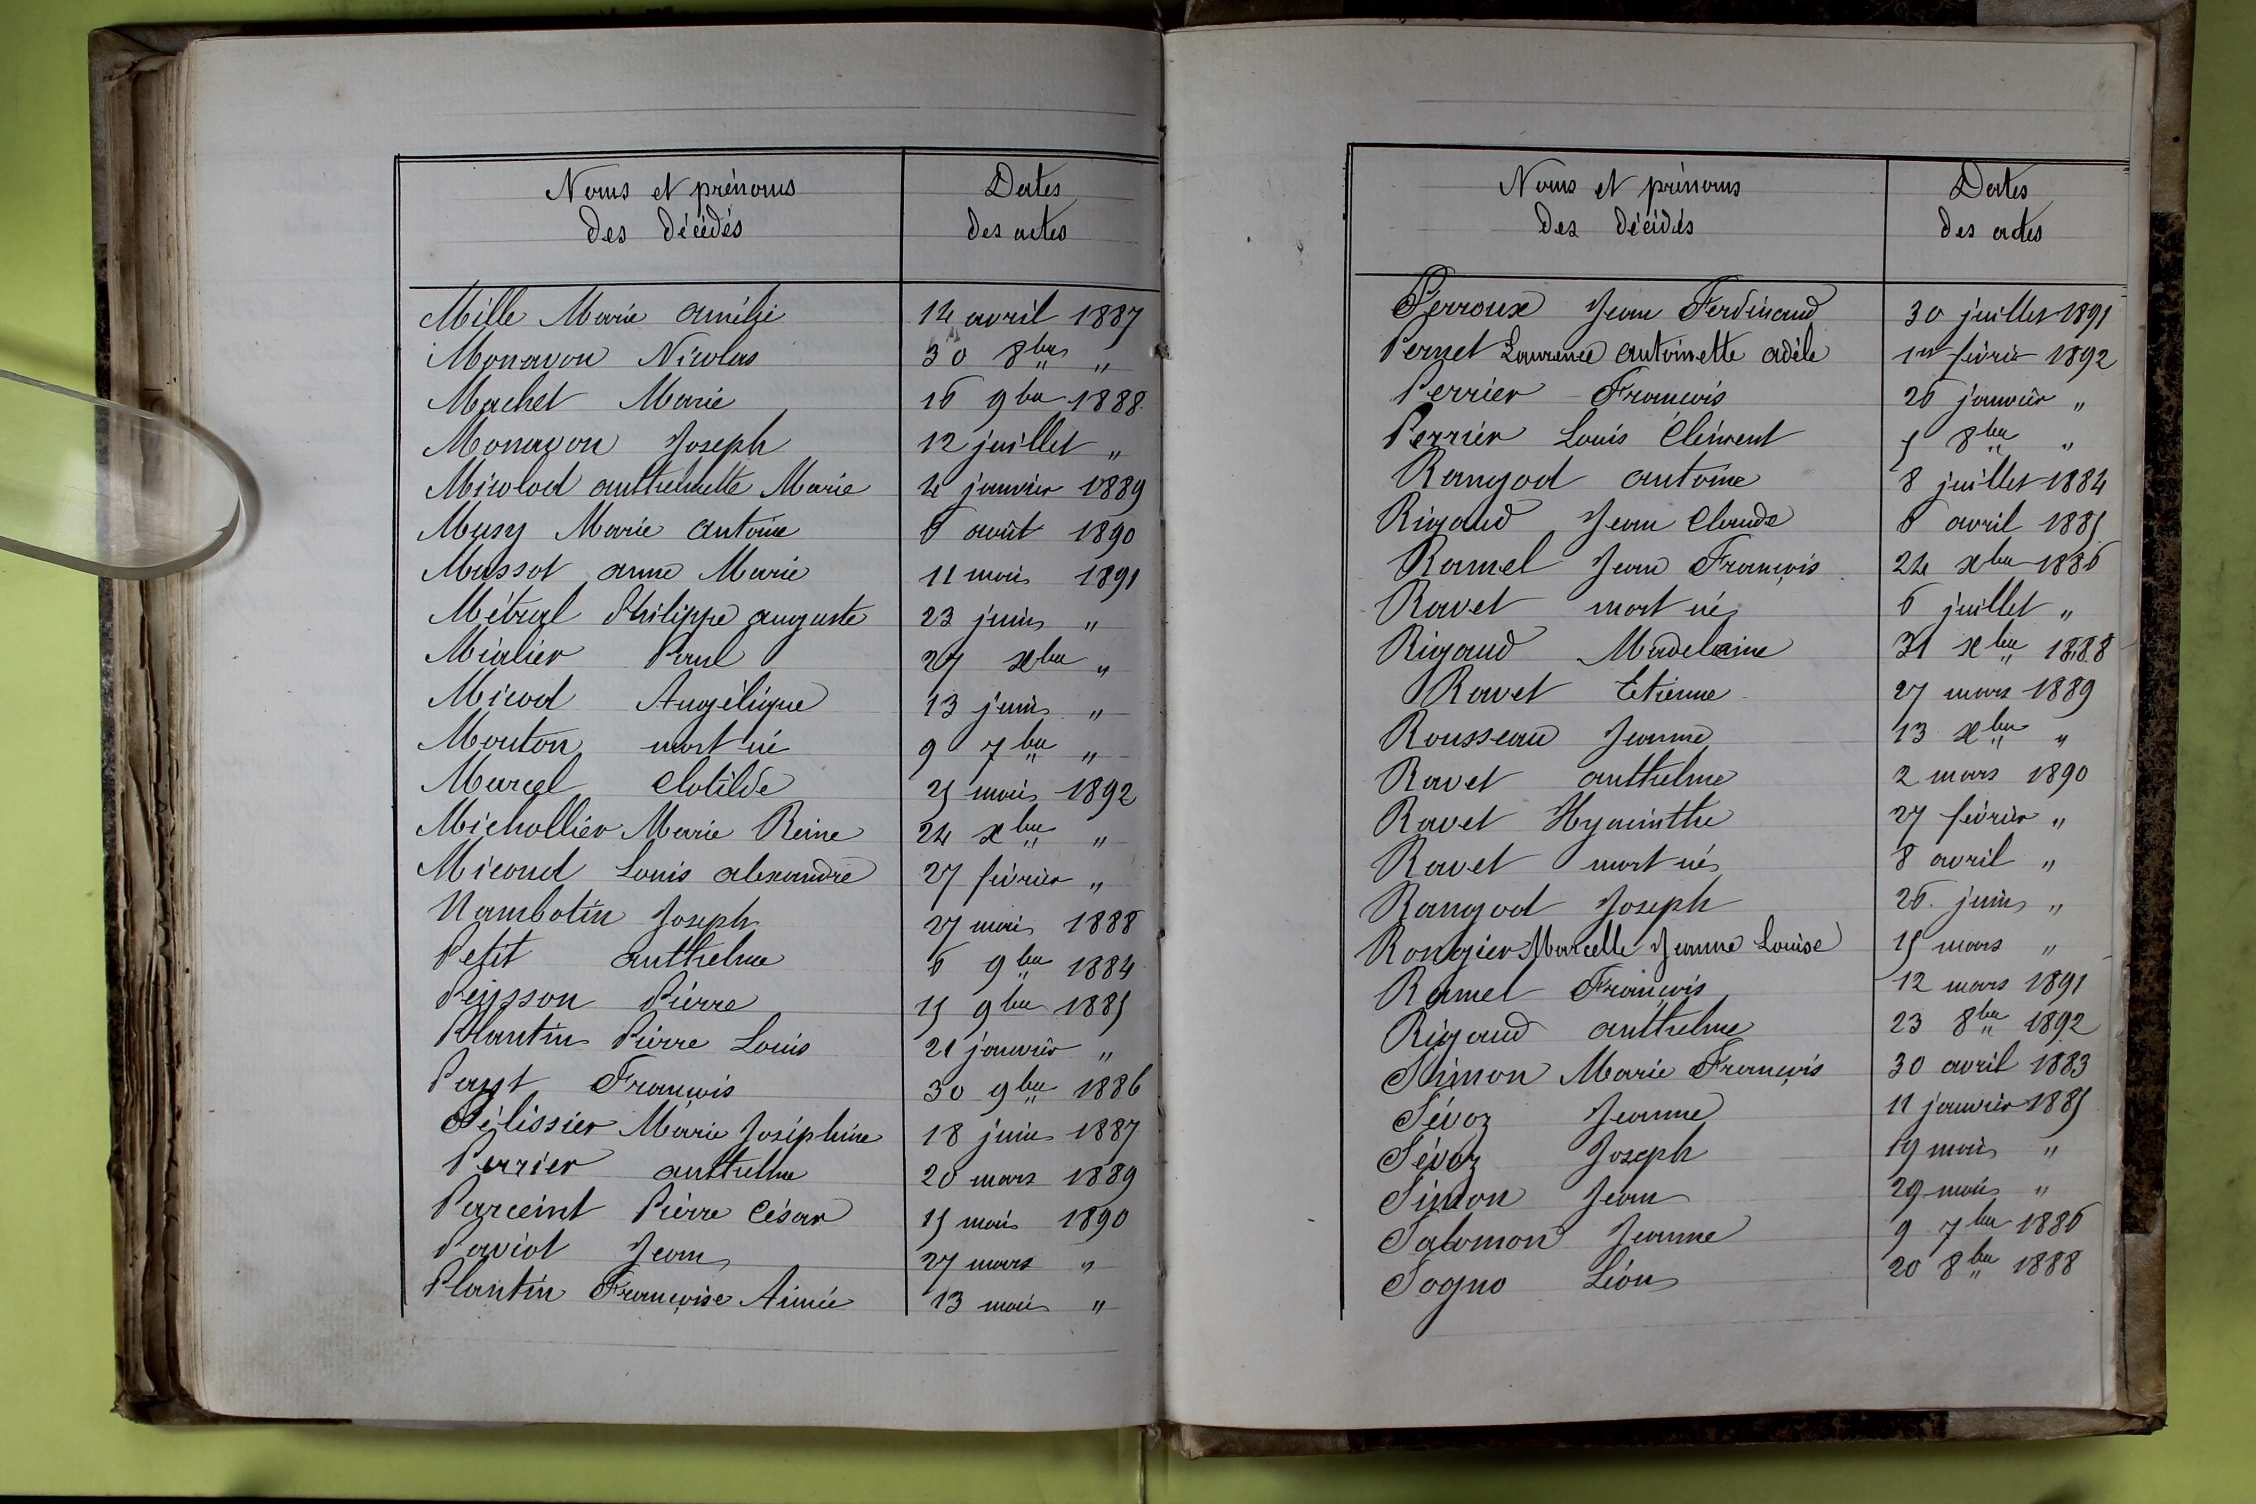 Noms et prénoms Dates
des décédés des actes
Mille Marie Amélie 14 avril 1887
Monavon Nicolas 30 8bre "
Machet Marie 16 9bre 1888
Monavon Joseph 12 juillet "
Micolod anthelmette Marie 4 janvier 1889
Musy Marie Antoine 6 août 1890
Massot anne Marie 11 mai 1891
Métral Philippe auguste 23 juin "
Mialier Paul 27 xbre "
Micod Angélique 13 juin "
Mouton mort né 9 7bre "
Marcel Clotilde 25 mai 1892
Michollier Marie Reine 24 xbre "
Micoud Louis alexandre 27 février "
Nambotin Joseph 27 mai 1888
Petit anthelme 6 9bre 1884
Peysson Pierre 15 9bre 1885
Plantin Pierre Louis 21 janvier "
Payt François 30 9bre 1886
Pélissier Marie Joséphine 18 juin 1887
Perrier anthelme 20 mars 1889
Parceint Pierre César 15 mai 1890
Paviot Jean 27 mars "
Plantin Françoise Aimée 13 mai "
Noms et prénoms Dates
des décédés des actes
Perroux Jean Ferdinand 30 juillet 1891
Pernet Laurence antoinette adèle 1er février 1892
Perrier François 26 janvier "
Perrier Louis Clément 5 8bre "
Rangod antoine 8 juillet 1884
Rigaud Jean Claude 6 avril 1885
Ramel Jean François 24 xbre 1886
Ravet mort né 6 juillet "
Rigaud Madelaine 31 xbre 1888
Ravet Etienne 27 mars 1889
Rousseau Jeanne 13 xbre "
Ravet anthelme 2 mars 1890
Ravet Hyacinthe 27 février "
Ravet mort né 8 avril "
Rangod Joseph 26 juin "
Rongier Marcelle Jeanne Louise 15 mars "
Ramel François 12 mars 1891
Rigaud anthelme 23 8bre 1892
Simon Marie François 30 avril 1883
Sévoz Jeanne 11 janvier 1885
Sévoz Joseph 19 mai "
Simon Jean 29 mai "
Salomon Jeanne 9 7bre 1886
Sogno Léon 20 8bre 1888